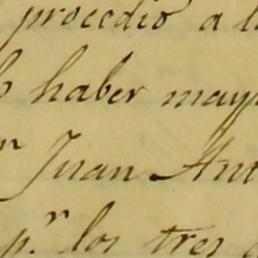 procedió a l
haber may
n Juan Ant
p.r los tres